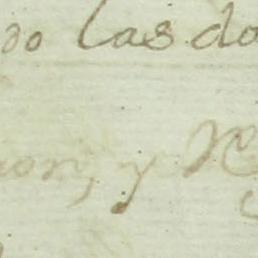 do las do
ion, y